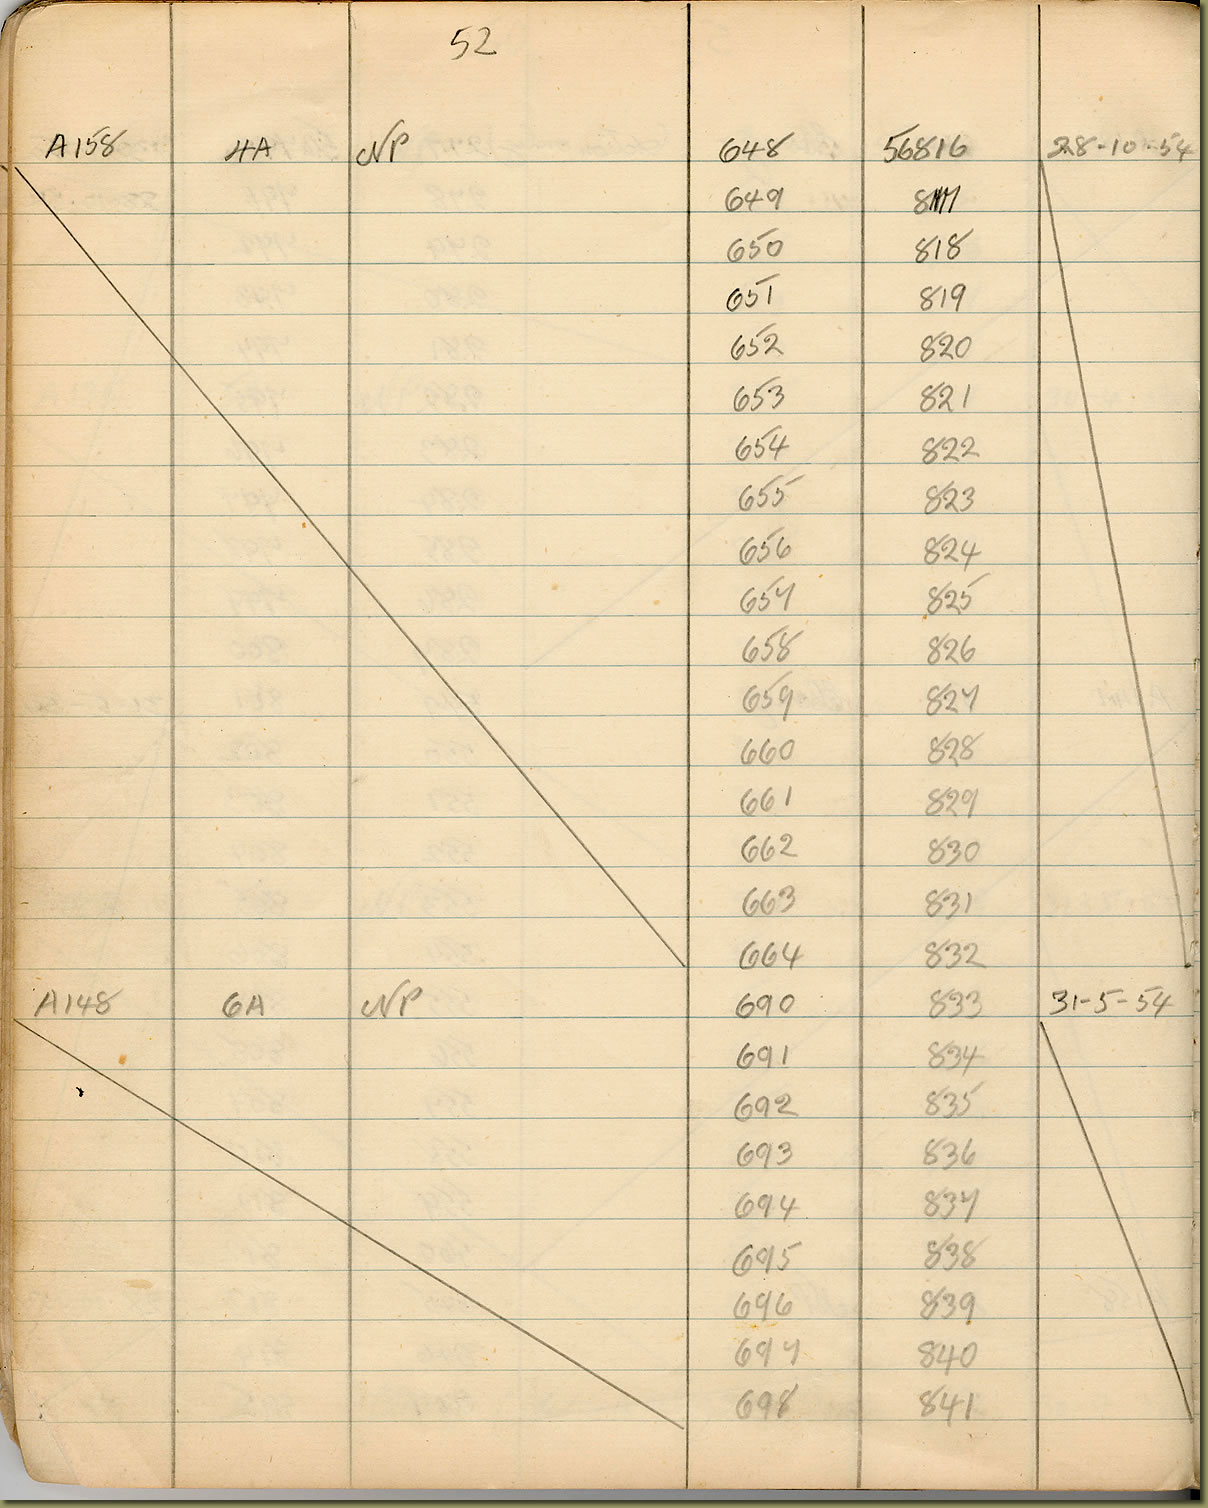 52
A158 4A NP 648 56816 28-10-54
649 817
650 818
651 819
652 820
653 821
654 822
655 823
656 824
657 825
658 826
659 827
660 828
661 829
662 830
663 831
664 832
A148 6A NP 690 833 31-5-54
691 834
692 835
693 836
694 837
695 838
696 839
697 840
698 841